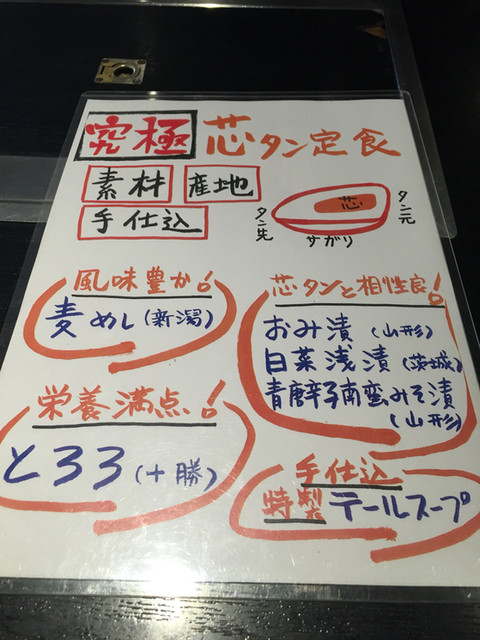 究極 芯タン定食
素材 産地
手仕込
芯
タン元
タン先
サガリ
風味豊か!
麦めし(新潟)
芯タンと相性良!
おみ漬(山形)
白菜浅漬(茨城)
青唐辛子南蛮みそ漬
(山形)
栄養満点!
とろろ(十勝)
手仕込
特製テールスープ